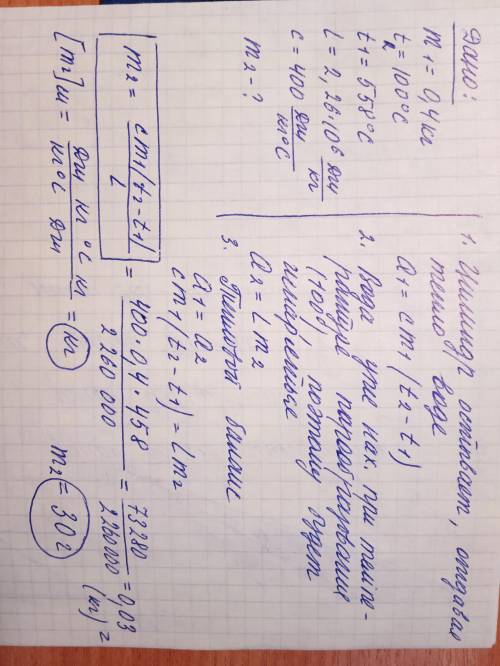 Дано:
m₁ = 0,4 кг
t₂ = 100°C
t₁ = 558°C
L = 2,26·10⁶ дж/кг
c = 400 дж/кг°C
m₂ - ?
1. Цилиндр остывает, отдавая
тепло воде
Q₁ = cm₁(t₂ - t₁)
2. Вода уже нах. при темпе-
ратуре парообразования
(100°), поэтому будет
испаряться
Q₂ = Lm₂
3. Тепловой баланс
Q₁ = Q₂
cm₁(t₂ - t₁) = Lm₂
m₂ = cm₁(t₂ - t₁)/L = 400·0,4·458/2260 000 = 73280/2260000 = 0,03 (кг) =
[m₂]си = дж кг °C кг/кг°C дж = кг m₂ = 30г